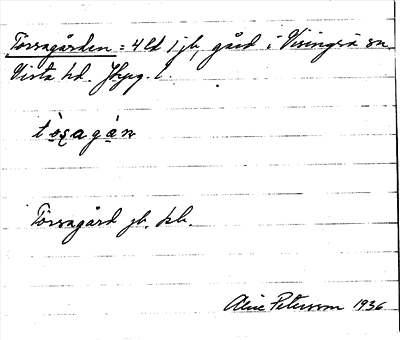 Torsagården = 4 ld 1 jb, gård i Visingsö sn
Vista hd. Jkpg. l.
tò̤sagá̤n
Torsagård jb. kb.
Alice Peterson 1936